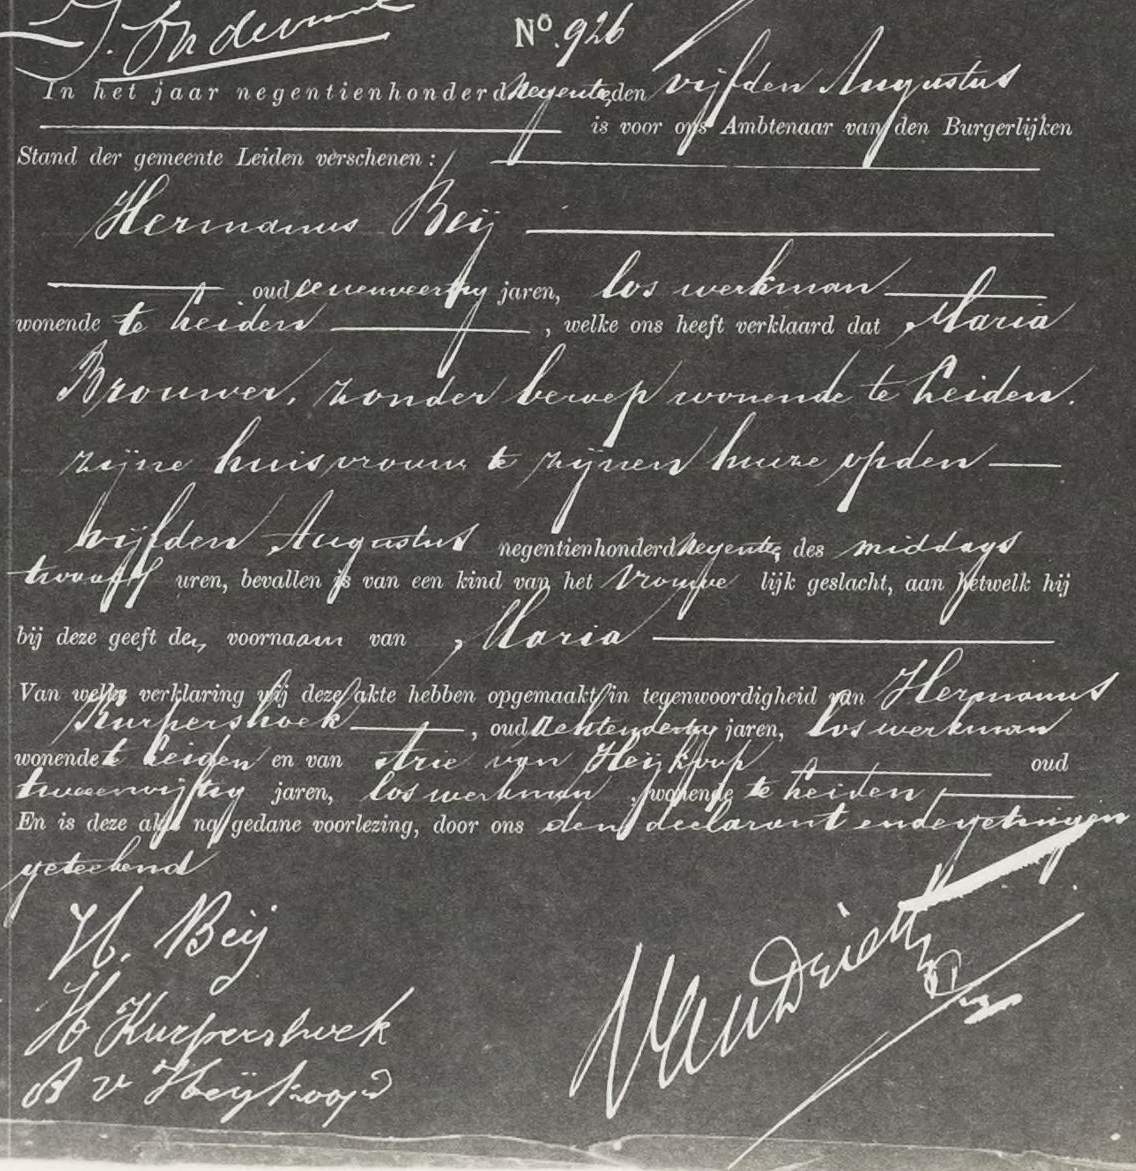 Nº. 926
In het jaar negentienhonderd negentien, den vijfden Augustus
is voor ons Ambtenaar van den Burgerlijken
Stand der gemeente Leiden verschenen :
Hermanus Beij
oud eenenveertig jaren, los werkman
wonende te Leiden , welke ons heeft verklaard dat Maria
Brouwer, zonder beroep wonende te Leiden.
zijne huisvrouw te zijnen huize op den
vijfden Augustus negentienhonderd negentien des middags
twaalf uren, bevallen is van een kind van het vrouwe lijk geslacht, aan hetwelk hij
bij deze geeft den voornaam van Maria
Van welke verklaring wij deze akte hebben opgemaakt in tegenwoordigheid van Hermanus
Kurpershoek , oud achtendertig jaren, los werkman
wonende te Leiden en van van Heijkoop oud
tweeenvijftig jaren, los werkman , wonende te Leiden
En is deze akte na gedane voorlezing, door ons den declarant en de getuigen
geteekend
H. Beij
H Kurpershoek
A v Heijkoop